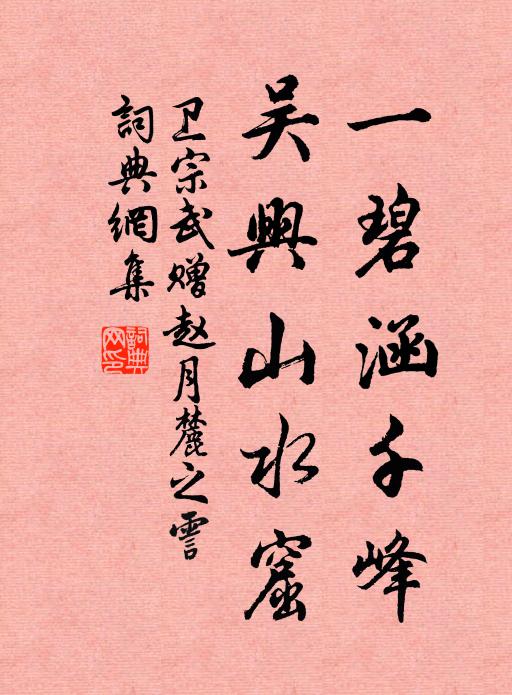 一碧涵千峰
吴興山水窟
卫宗武赠赵月麓之霅
詞典網集
詞典網印